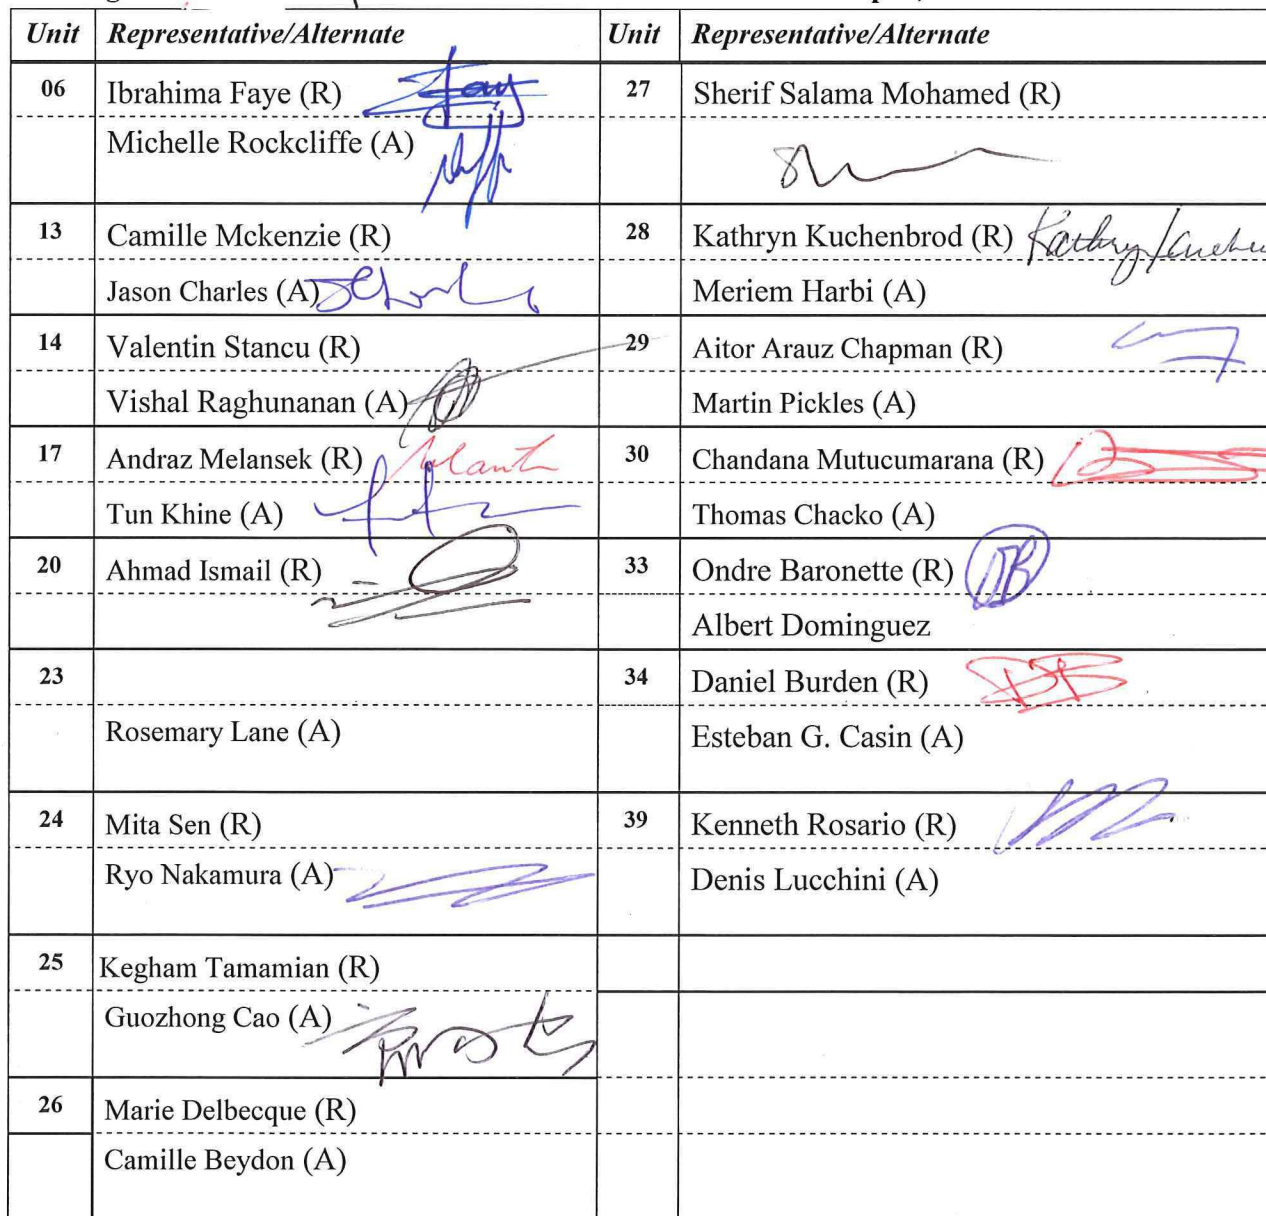 Unit Representative/Alternate Unit Representative/Alternate
06 Ibrahima Faye (R) 27 Sherif Salama Mohamed (R)
Michelle Rockcliffe (A)
13 Camille Mckenzie (R) 28 Kathryn Kuchenbrod (R)
Jason Charles (A) Meriem Harbi (A)
14 Valentin Stancu (R) 29 Aitor Arauz Chapman (R)
Vishal Raghunanan (A) Martin Pickles (A)
17 Andraz Melansek (R) 30 Chandana Mutucumarana (R)
Tun Khine (A) Thomas Chacko (A)
20 Ahmad Ismail (R) 33 Ondre Baronette (R)
Albert Dominguez
23 34 Daniel Burden (R)
Rosemary Lane (A) Esteban G. Casin (A)
24 Mita Sen (R) 39 Kenneth Rosario (R)
Ryo Nakamura (A) Denis Lucchini (A)
25 Kegham Tamamian (R)
Guozhong Cao (A)
26 Marie Delbecque (R)
Camille Beydon (A)